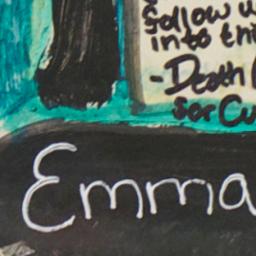 follow u
into thi
-Death
for Cu
Emma